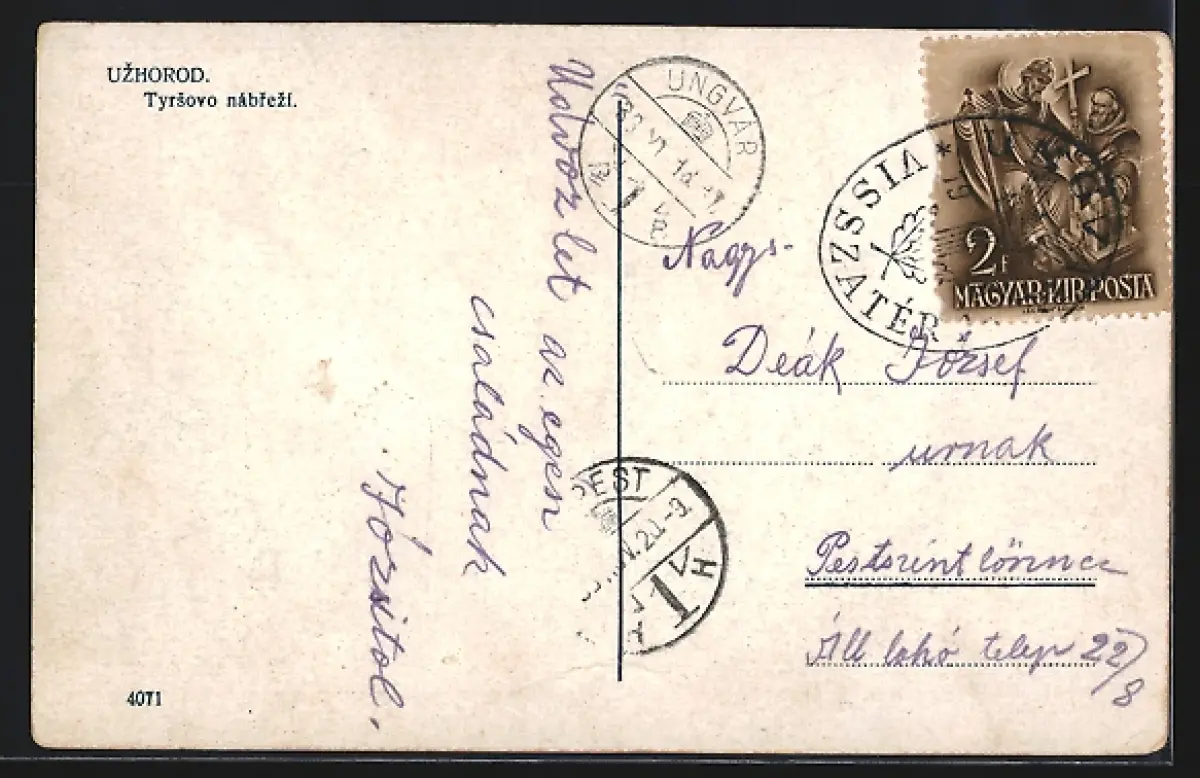 UŽHOROD.
Tyršovo nábřeží.
Udvozlet az egesn
családnak
Józsitol.
4071
UNGVÁR
VI 14
VISSZATÉR
2F
MAGYAR·KIR·POSTA
Nagys.
Deák József
urnak
Pestszentlőrincz
Áll lakó telep 22/8
PEST